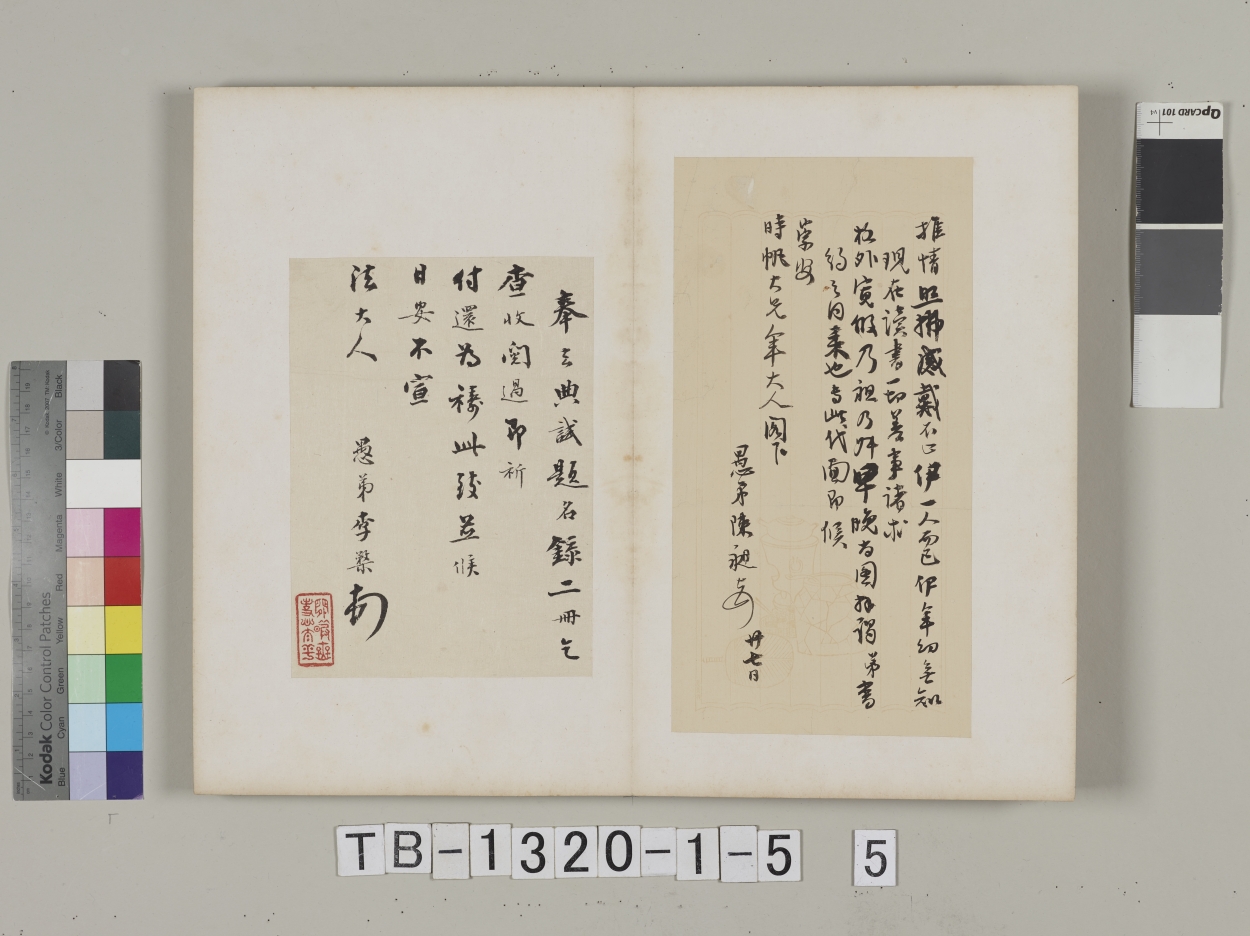 推情照拂感戴不口伊一人而已伊年幼無知
現在讀書一切善事諸求
格外寬假乃祖乃父早晚當圖拜謁弟書
約之日來也耑此代面即候
崇安
時帆大兄年大人閣下
愚弟陳
廿七日
奉去典試題名錄二冊乞
查收閱過即祈
付還為禱此致並候
日安不宣
法大人
愚弟李棨
TB-1320-1-5 5
Kodak Color Control Patches
Blue Cyan Green Yellow Red Magenta White 3/Color Black
QpCARD 101 v4